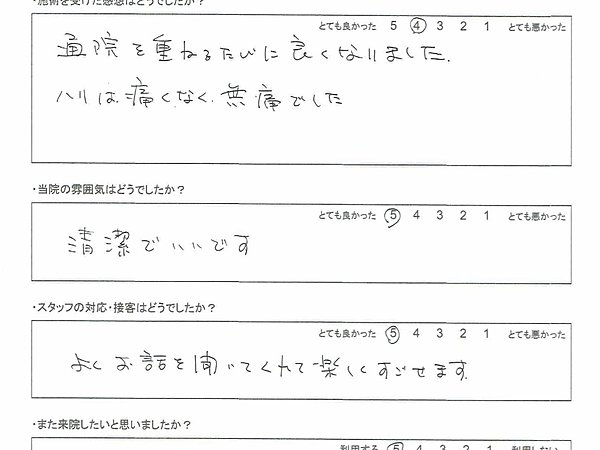 ・施術を受けた感想はどうでしたか？
とても良かった 5 4 3 2 1 とても悪かった
通院を重ねるたびに良くなりました。
ハリは痛くなく、無痛でした
・当院の雰囲気はどうでしたか？
とても良かった 5 4 3 2 1 とても悪かった
清潔でいいです
・スタッフの対応・接客はどうでしたか？
とても良かった 5 4 3 2 1 とても悪かった
よくお話を聞いてくれて楽しくすごせます。
・また来院したいと思いましたか？
利用する 5 4 3 2 1 利用しない